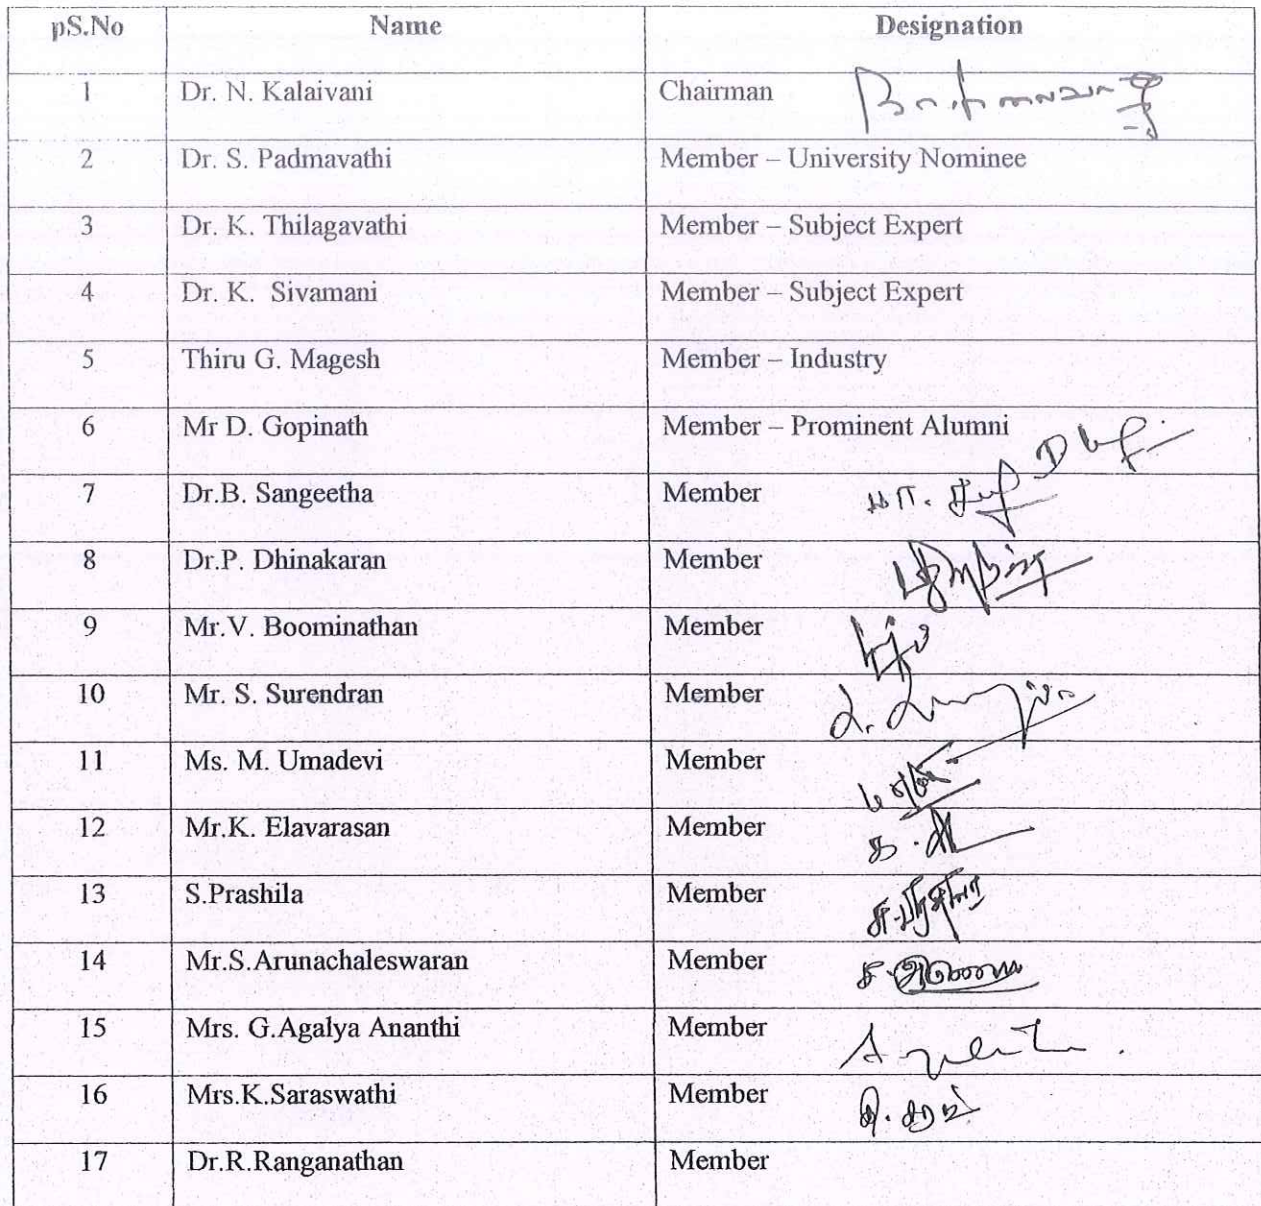 pS.No Name Designation
1 Dr. N. Kalaivani Chairman
2 Dr. S. Padmavathi Member – University Nominee
3 Dr. K. Thilagavathi Member – Subject Expert
4 Dr. K. Sivamani Member – Subject Expert
5 Thiru G. Magesh Member – Industry
6 Mr D. Gopinath Member – Prominent Alumni
7 Dr.B. Sangeetha Member
8 Dr.P. Dhinakaran Member
9 Mr.V. Boominathan Member
10 Mr. S. Surendran Member
11 Ms. M. Umadevi Member
12 Mr.K. Elavarasan Member
13 S.Prashila Member
14 Mr.S.Arunachaleswaran Member
15 Mrs. G.Agalya Ananthi Member
16 Mrs.K.Saraswathi Member
17 Dr.R.Ranganathan Member